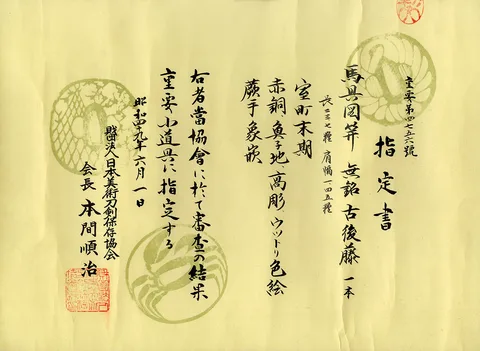 重要第
指定書
馬具図笄 無銘 古後藤 一本
肩幅一・四五糎
室町末期
赤銅魚子地 高彫 ウットリ色絵
蕨手象嵌
右者當協會に於て審査の結果
重要小道具に指定する
昭和四十九年六月一日
財団法人日本美術刀剣保存協会
会長 本間順治